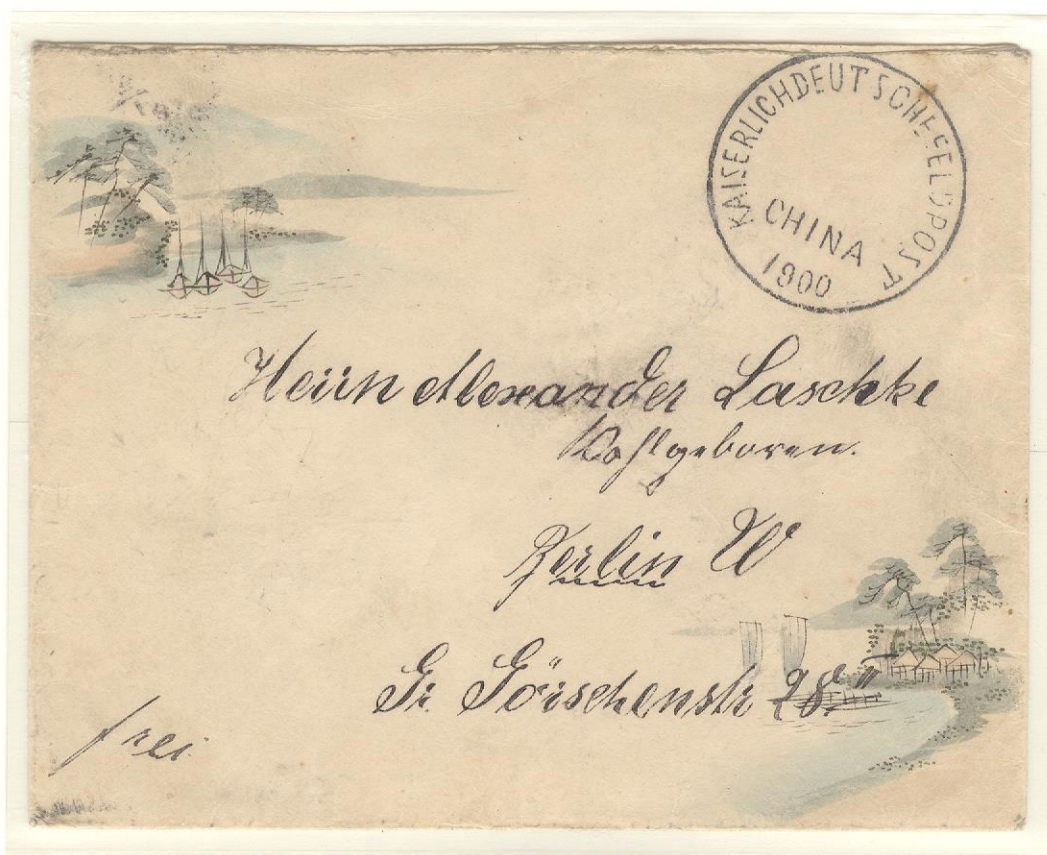 KAISERLICH DEUTSCHE FELDPOST
CHINA
1900
Herrn Alexander Laschke
Wohlgeboren.
Berlin W
Gr. Görschenstr 28 II
frei